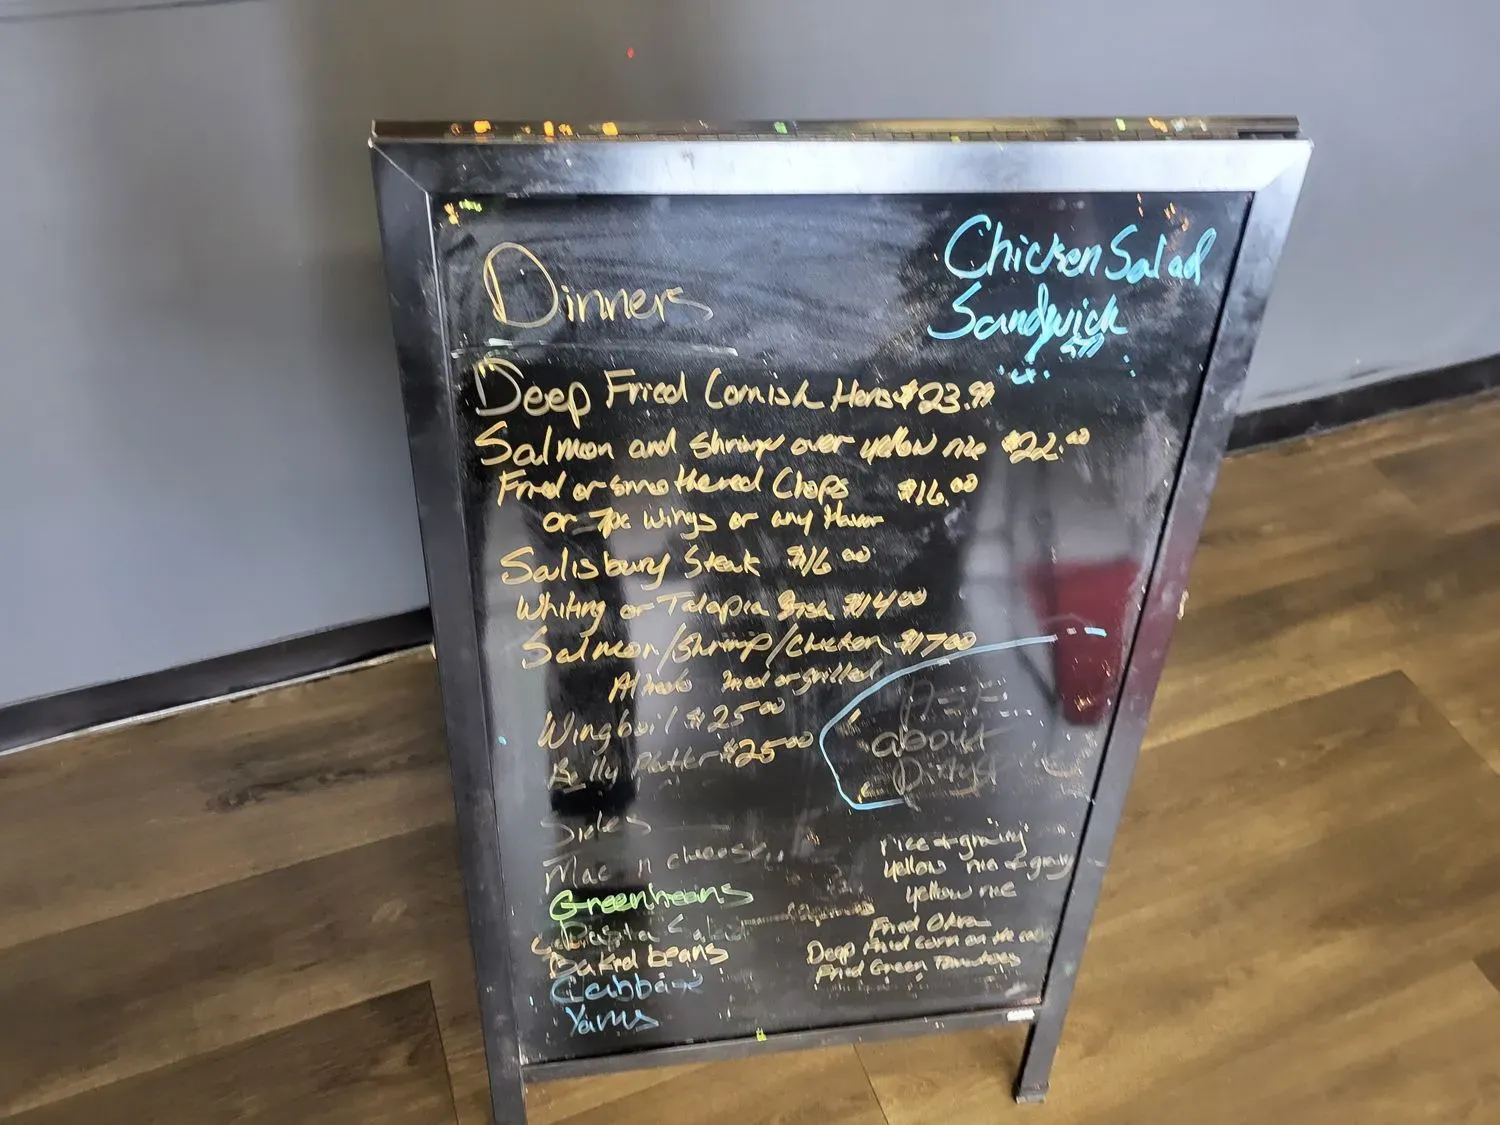 Dinners
Chicken Salad
Sandwich
Deep Fried Cornish Hens $23.99
Salmon and shrimp over yellow rice $22.00
Fried or smothered Chops $16.00
or 7pc wings or any flavor
Salisbury Steak $16.00
Whiting or Talapia $14.00
Salmon/Shrimp/Chicken $17.00
Alfredo fried or grilled
Wingboil $25.00
Belly Platter $25.00
about
Sides
Mac n cheese
Greenbeans
Pasta Salad
Baked beans
Cabbage
Yams
rice & gravy
yellow rice & gravy
yellow rice
Fried Okra
Deep fried corn on the cob
Fried Green Tomatoes